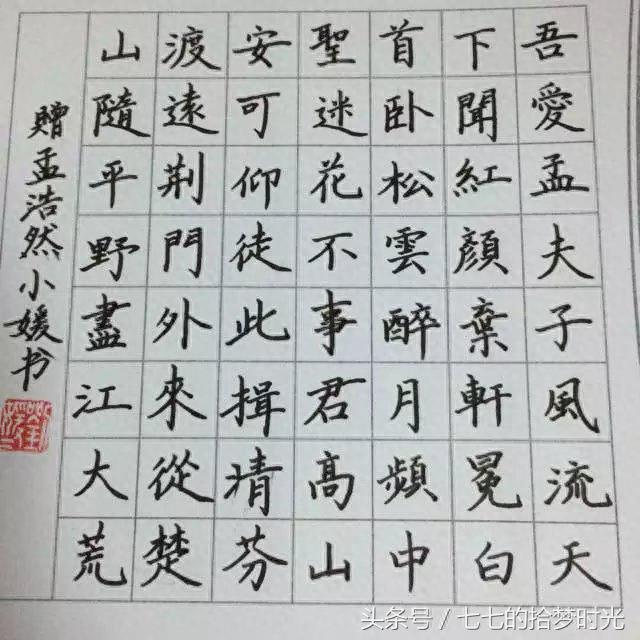 吾愛孟夫子風流天
下聞紅顏棄軒冕白
首卧松雲醉月頻中
聖迷花不事君高山
安可仰徒此揖清芬
渡遠荆門外來從楚
山隨平野盡江大荒
贈孟浩然小媛书
头条号／七七的拾梦时光